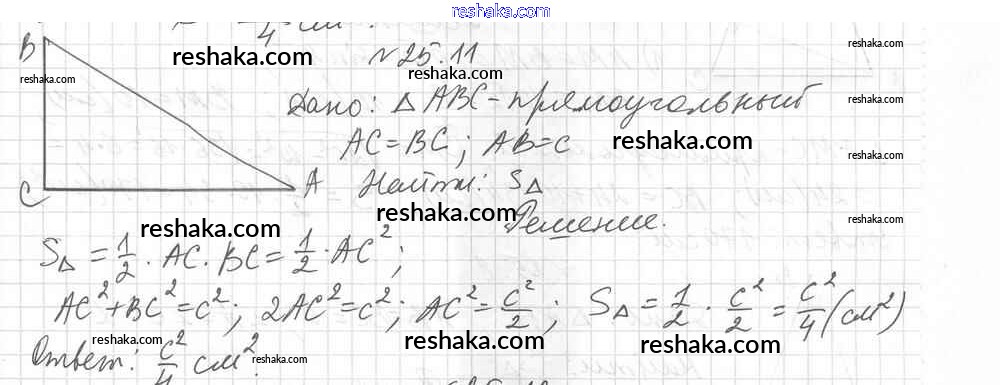 reshaka.com
4 см²
reshaka.com reshaka.com
№25.11
reshaka.com reshaka.com
B
Дано: △ABC - прямоугольный
reshaka.com
AC=BC; AB=c reshaka.com
C A Найти: S△
reshaka.com reshaka.com
Решение.
reshaka.com
S△ = 1/2 · AC · BC = 1/2 · AC²;
AC²+BC²=c²; 2AC²=c²; AC²=c²/2; S△ = 1/2 · c²/2 = c²/4 (см²)
reshaka.com reshaka.com reshaka.com
Ответ: c²/4 см². reshaka.com
reshaka.com